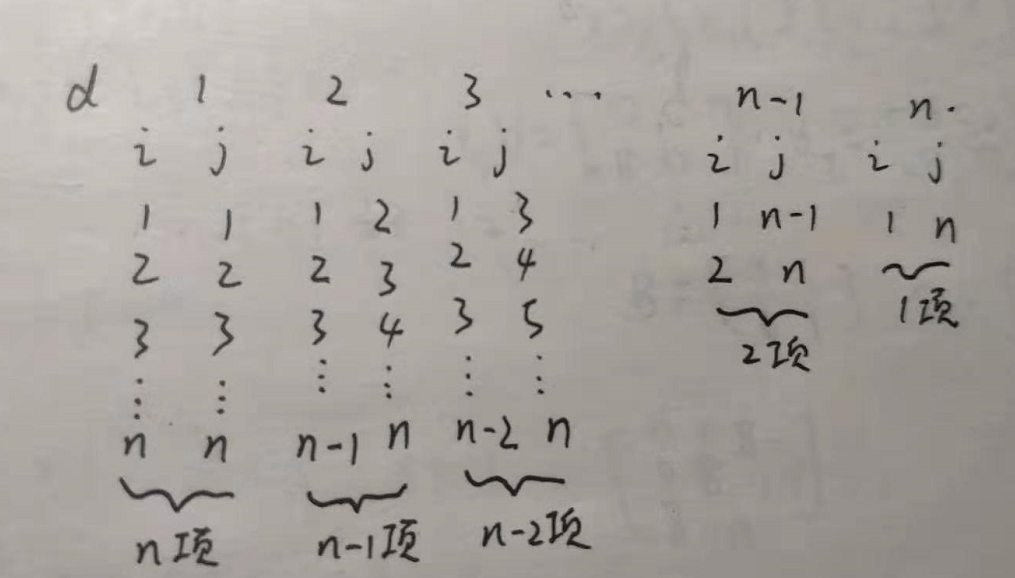 d 1 2 3 ... n-1 n.
i j i j i j i j i j
1 1 1 2 1 3 1 n-1 1 n
2 2 2 3 2 4 2 n
3 3 3 4 3 5 2项 1项
⋮ ⋮ ⋮ ⋮ ⋮ ⋮
n n n-1 n n-2 n
n项 n-1项 n-2项